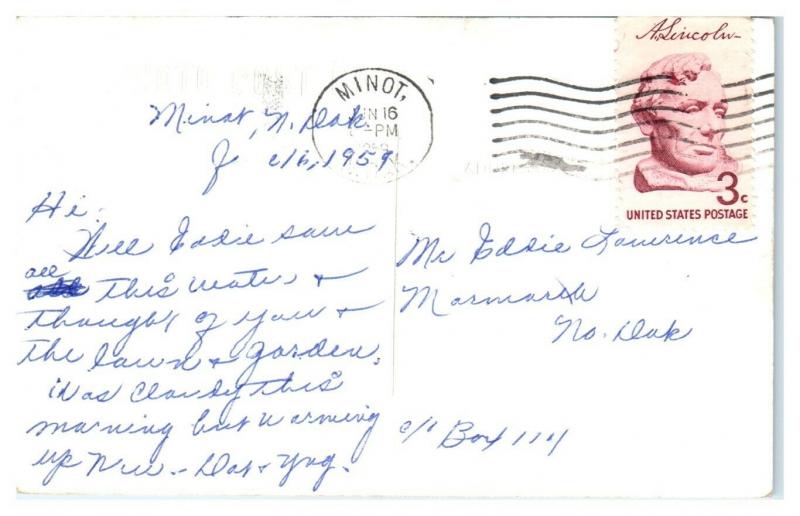 A. Lincoln
MINOT,
JUN 16
PM
3c
UNITED STATES POSTAGE
Minot, N. Dak
1959
Hi:
Well Eddie saw
all this water &
thought of you &
the lawn & garden.
Was cloudy this
morning but warming
up now. Dot &
Mr Eddie Lawrence
Marmarth
No. Dak
c/o Box 114